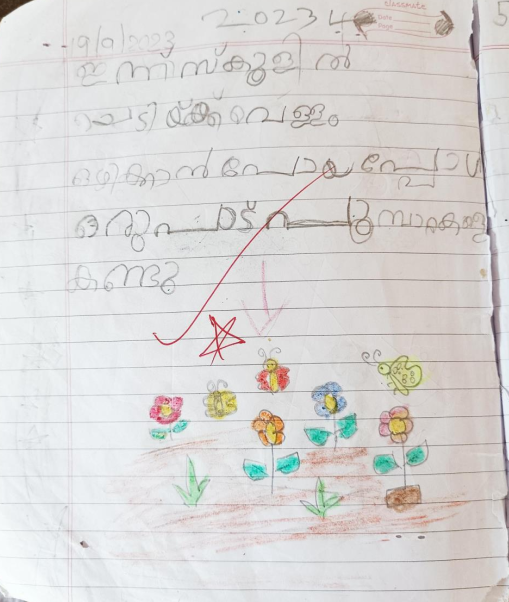 2023
classmate
Date
Page
19/9/2023
ഇന്ന് സ്കൂളിൽ
ചെടിയ്ക്ക് വെള്ളം
ഒഴിക്കാൻ പോയപ്പോൾ
ഒരുപാട് പൂമ്പാറ്റകളെ
കണ്ടു
5